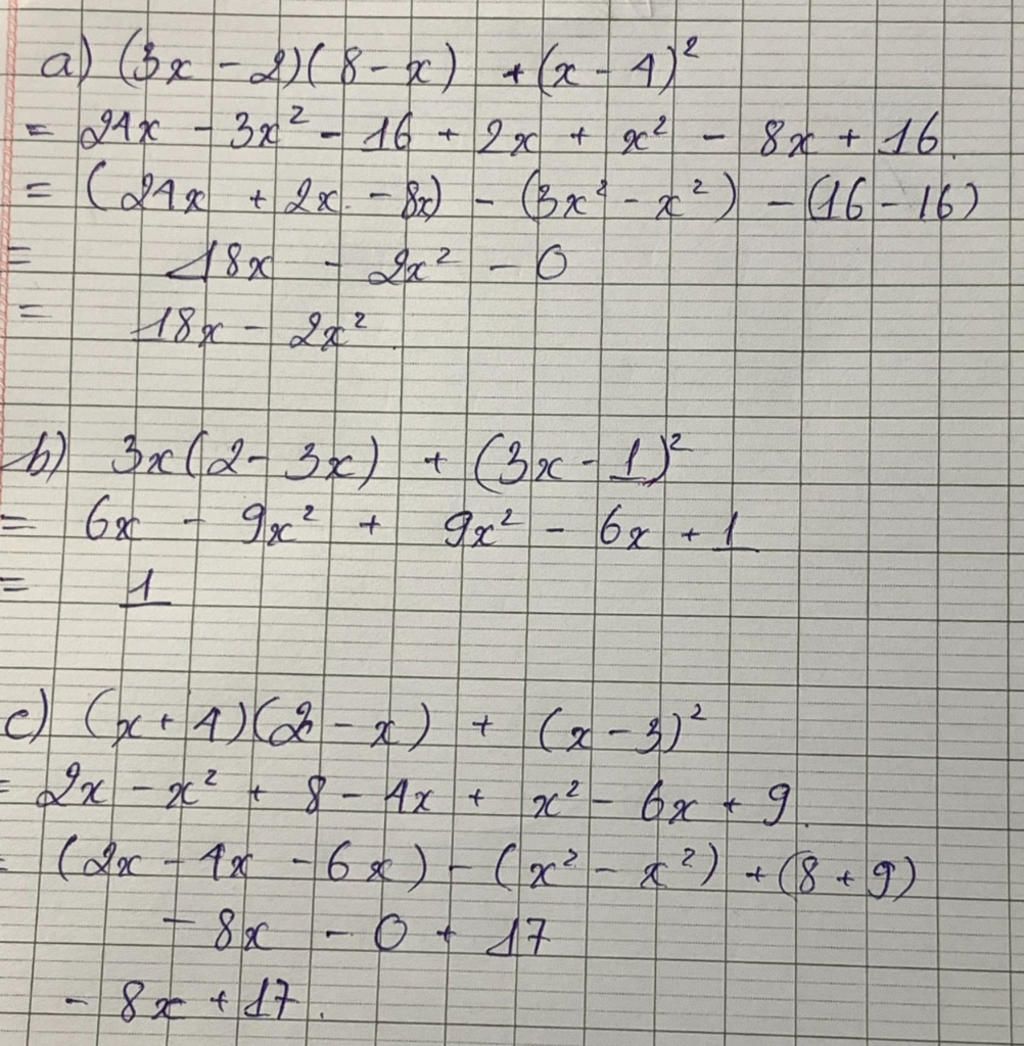 a) (3x - 2)(8 - x) + (x - 4)²
= 24x - 3x² - 16 + 2x + x² - 8x + 16.
= (24x + 2x - 8x) - (3x² - x²) - (16 - 16)
= 18x - 2x² - 0
= 18x - 2x².
b) 3x(2 - 3x) + (3x - 1)²
= 6x - 9x² + 9x² - 6x + 1
= 1
c) (x + 4)(2 - x) + (x - 3)²
= 2x - x² + 8 - 4x + x² - 6x + 9.
= (2x - 4x - 6x) - (x² - x²) + (8 + 9)
- 8x - 0 + 17
- 8x + 17.